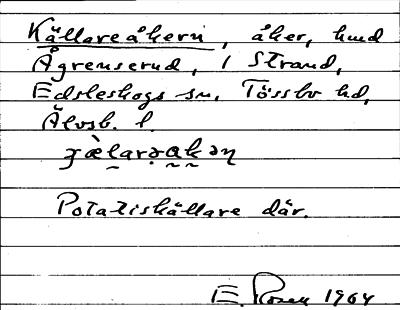 Källareåkern, åker, hmd
Ågrenserud, 1 Strand,
Edsleskogs sn, Tössbo hd,
Älvsb. l.
Potatiskällare där.
E. Rosen 1964